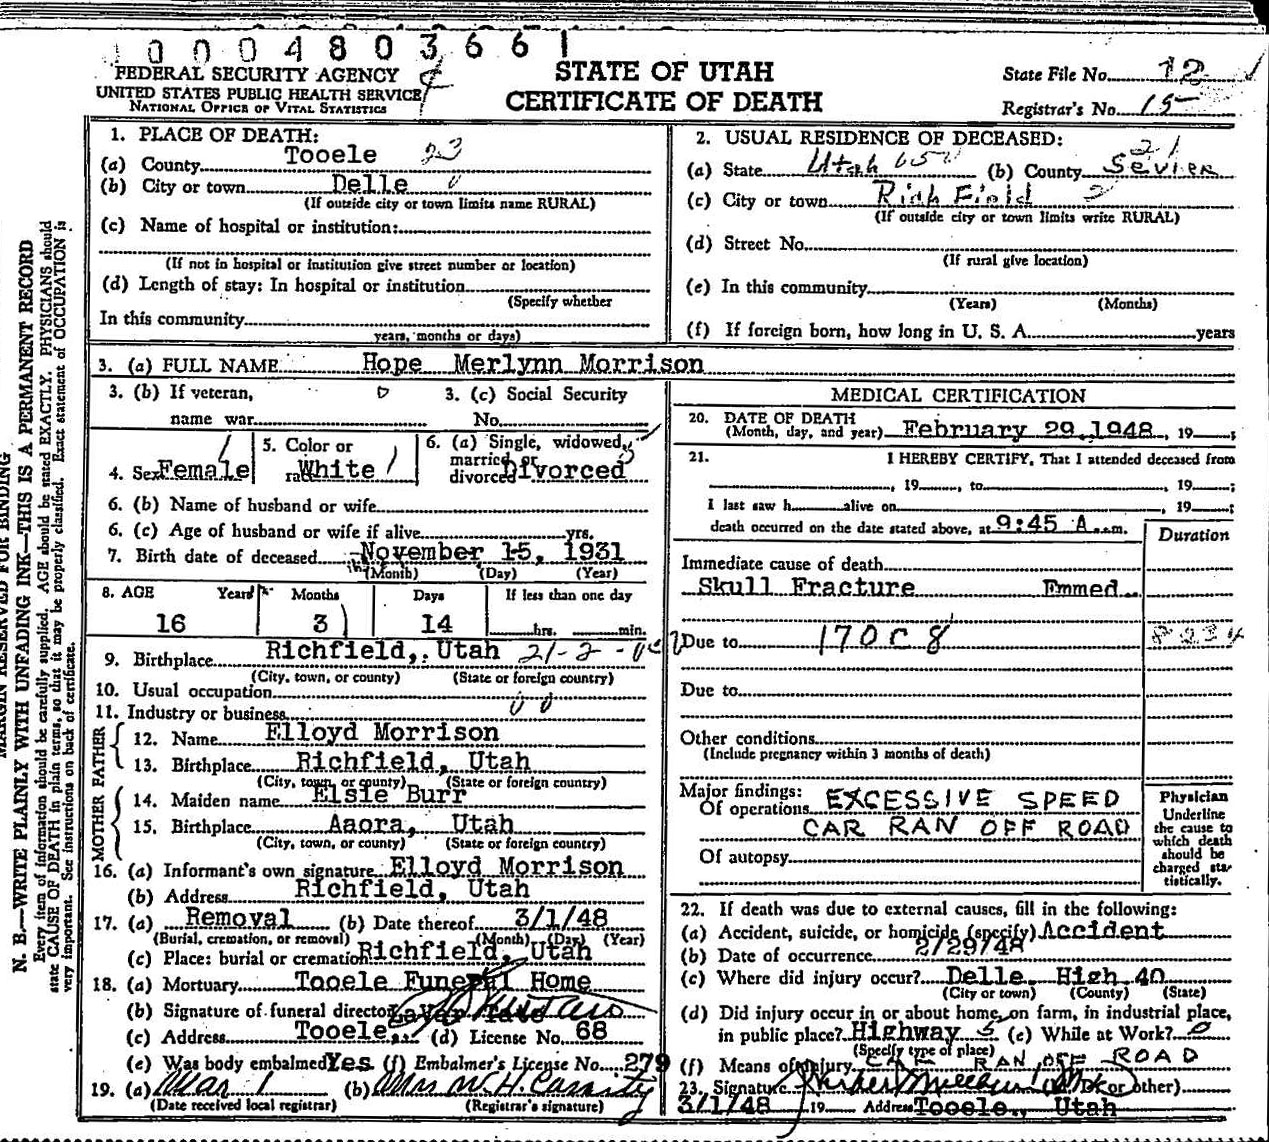 1 0 0 0 4 8 0 3 6 6 1
FEDERAL SECURITY AGENCY
UNITED STATES PUBLIC HEALTH SERVICE
NATIONAL OFFICE OF VITAL STATISTICS
STATE OF UTAH
CERTIFICATE OF DEATH
State File No. 12
Registrar's No. 15
MARGIN RESERVED FOR BINDING
N. B.—WRITE PLAINLY WITH UNFADING INK—THIS IS A PERMANENT RECORD
Every item of information should be carefully supplied. AGE should be stated EXACTLY. PHYSICIANS should
state CAUSE OF DEATH in plain terms, so that it may be properly classified. Exact statement of OCCUPATION is
very important. See instructions on back of certificate.
1. PLACE OF DEATH:
(a) County Tooele 23
(b) City or town Delle
(If outside city or town limits name RURAL)
(c) Name of hospital or institution:
(If not in hospital or institution give street number or location)
(d) Length of stay: In hospital or institution
(Specify whether
In this community
years, months or days)
2. USUAL RESIDENCE OF DECEASED:
21
(a) State Utah (b) County Sevier
(c) City or town Rich Field 2
(If outside city or town limits write RURAL)
(d) Street No.
(If rural give location)
(e) In this community
(Years) (Months)
(f) If foreign born, how long in U. S. A. years
3. (a) FULL NAME Hope Merlynn Morrison
3. (b) If veteran,
name war
3. (c) Social Security
No.
4. Sex Female
5. Color or
race White
6. (a) Single, widowed,
married, or
divorced Divorced
6. (b) Name of husband or wife
6. (c) Age of husband or wife if alive yrs.
7. Birth date of deceased November 15, 1931
(Month) (Day) (Year)
8. AGE Years Months Days If less than one day
16 3 14 hrs. min.
9. Birthplace Richfield, Utah 21-2-
(City, town, or county) (State or foreign country)
10. Usual occupation
11. Industry or business
FATHER
12. Name Elloyd Morrison
13. Birthplace Richfield, Utah
(City, town, or county) (State or foreign country)
MOTHER
14. Maiden name Elsie Burr
15. Birthplace Aaora, Utah
(City, town, or county) (State or foreign country)
16. (a) Informant's own signature Elloyd Morrison
(b) Address Richfield, Utah
17. (a) Removal (b) Date thereof 3/1/48
(Burial, cremation, or removal) (Month) (Day) (Year)
(c) Place: burial or cremation Richfield, Utah
18. (a) Mortuary Tooele Funeral Home
(b) Signature of funeral director LaVar Tate
(c) Address Tooele (d) License No. 68
(e) Was body embalmed Yes (f) Embalmer's License No. 279
19. (a) Mar 1 (b) Mrs W. H. Cassity
(Date received local registrar) (Registrar's signature)
MEDICAL CERTIFICATION
20. DATE OF DEATH
(Month, day, and year) February 29, 1948, 19 ;
21. I HEREBY CERTIFY, That I attended deceased from
, 19 , to , 19 ;
I last saw h alive on , 19 ;
death occurred on the date stated above, at 9:45 A. m.
Duration
Immediate cause of death
Skull Fracture Emmed
Due to 170C8
Due to
Other conditions
(Include pregnancy within 3 months of death)
Major findings:
Of operations EXCESSIVE SPEED
CAR RAN OFF ROAD
Of autopsy
Physician
Underline
the cause to
which death
should be
charged sta-
tistically.
22. If death was due to external causes, fill in the following:
(a) Accident, suicide, or homicide (specify) Accident
(b) Date of occurrence 2/29/48
(c) Where did injury occur? Delle High 40
(City or town) (County) (State)
(d) Did injury occur in or about home, on farm, in industrial place,
in public place? Highway (e) While at Work?
(Specify type of place)
(f) Means of injury CAR RAN OFF ROAD
23. Signature (M.D. or other)
3/1/48 19 Address Tooele, Utah